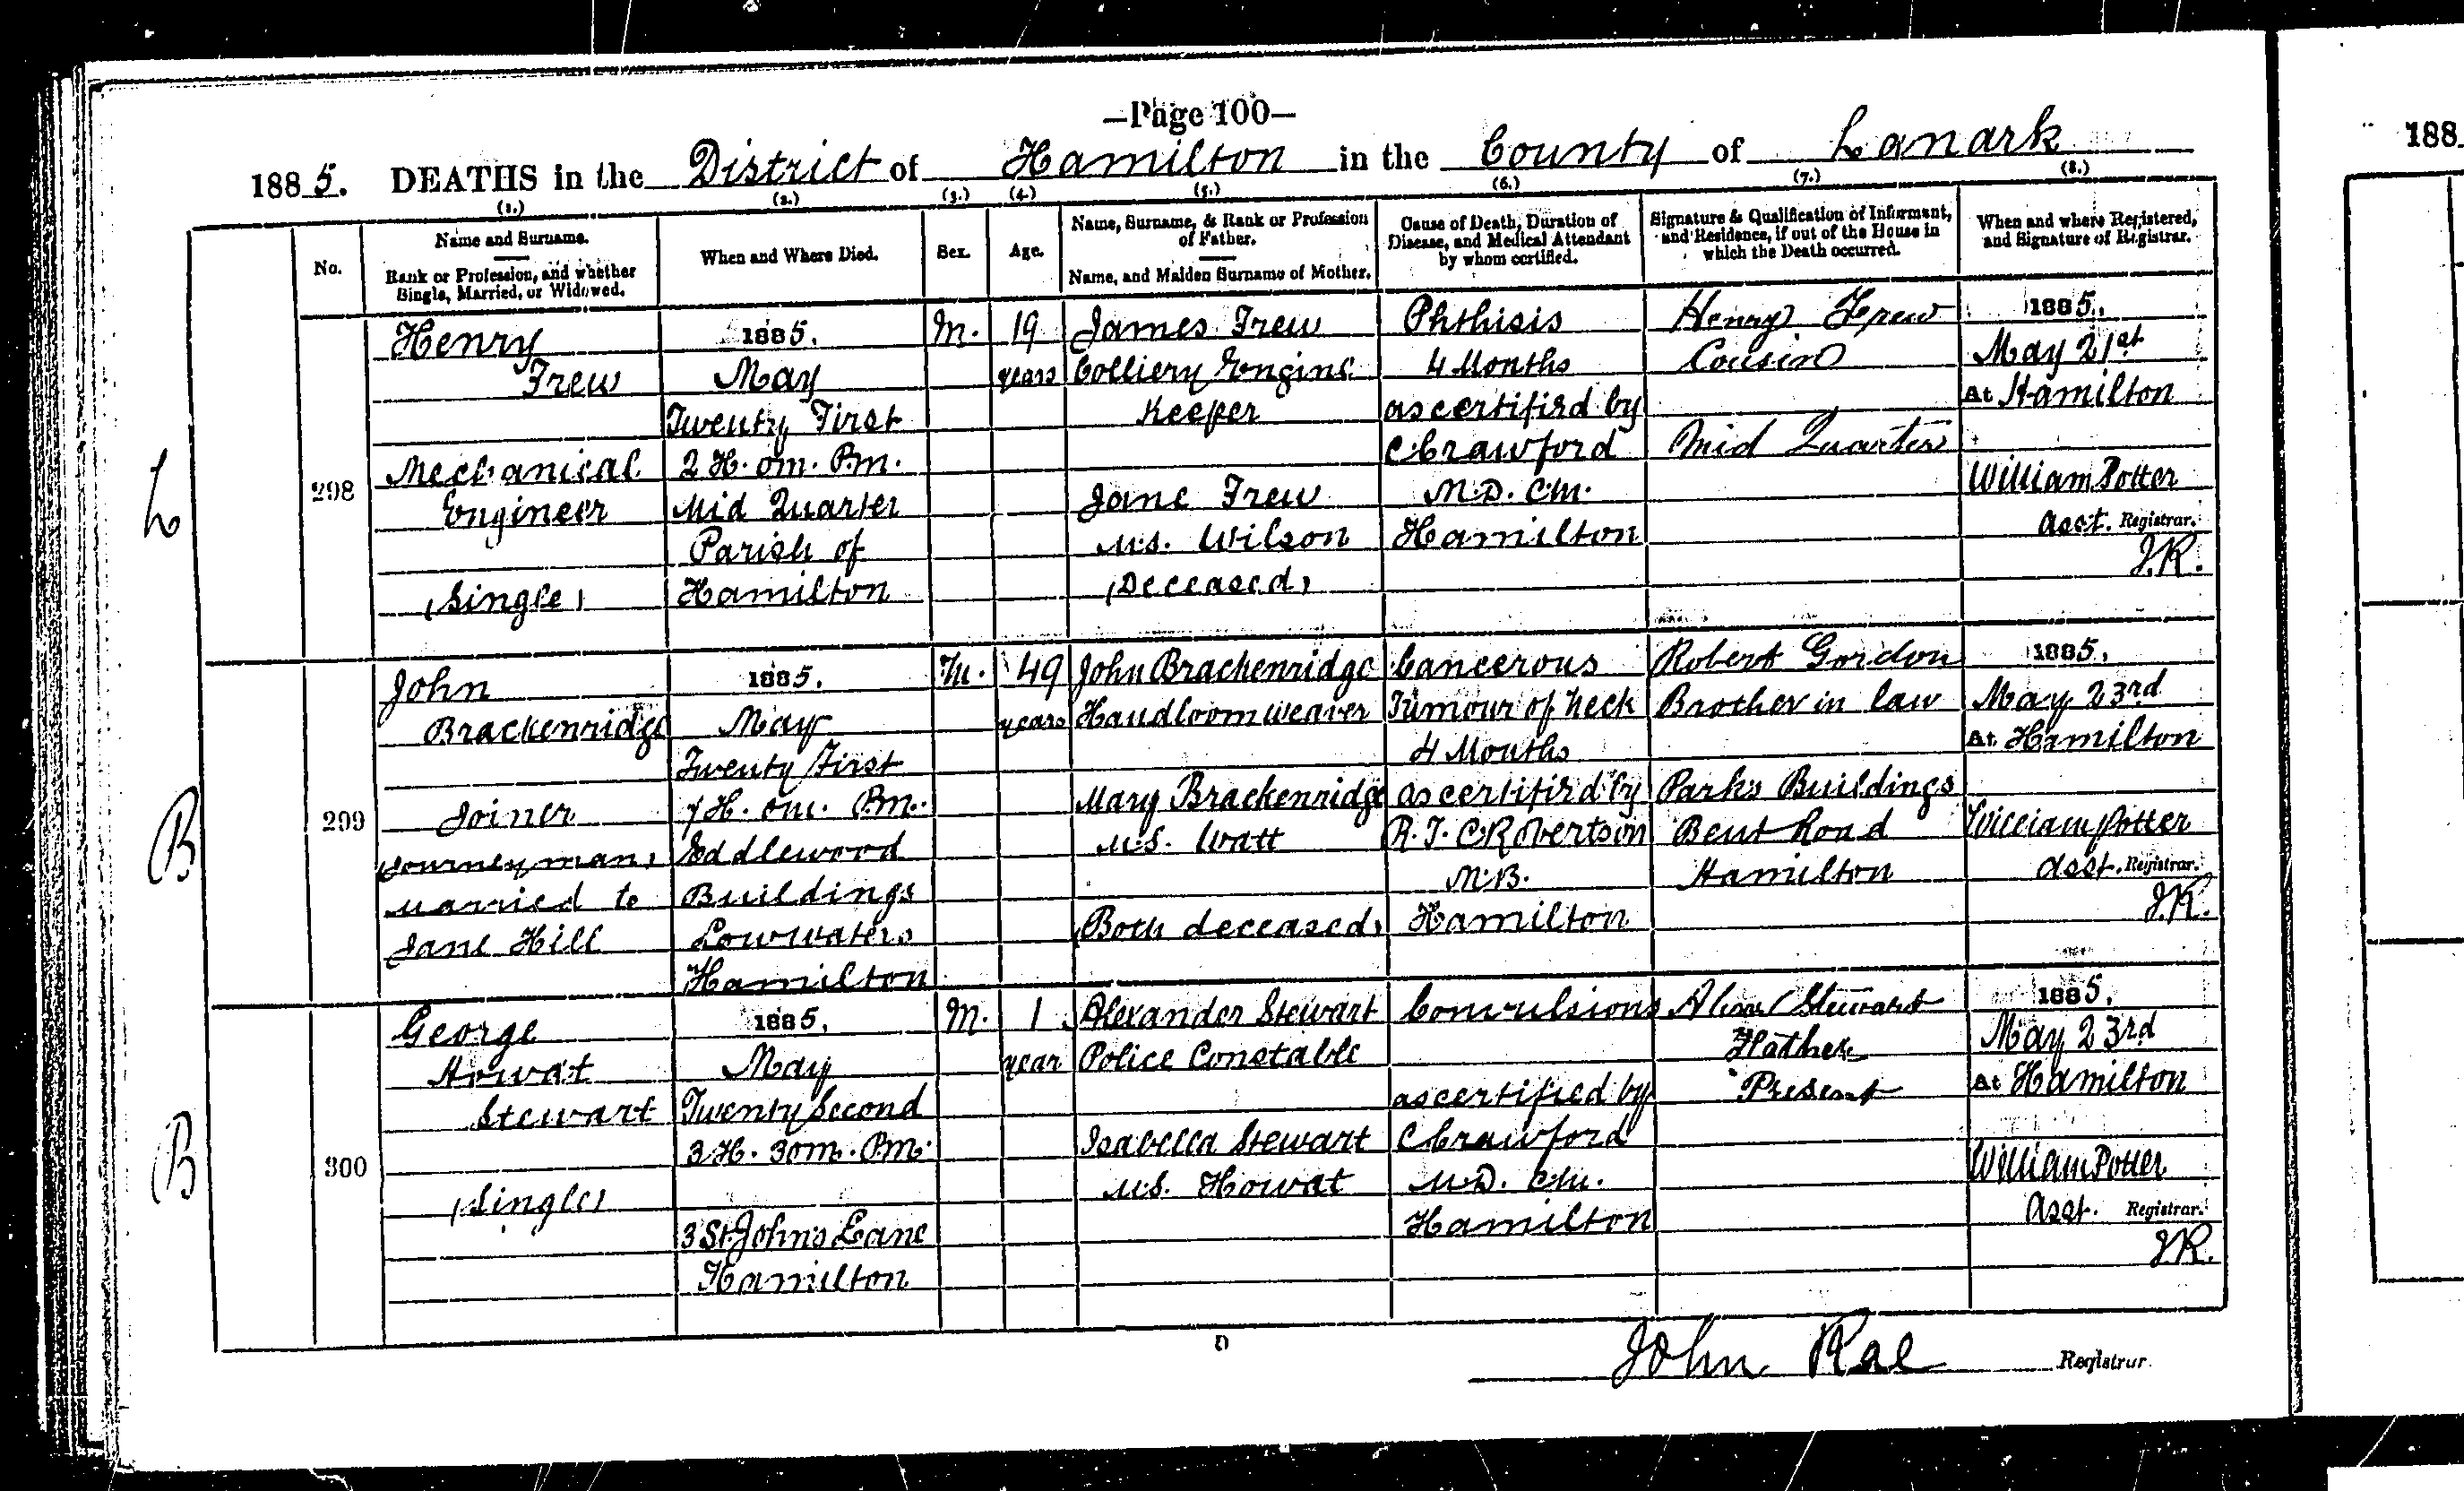 —Page 100—
1885. DEATHS in the District of Hamilton in the County of Lanark
188
(1.) (2.) (3.) (4.) (5.) (6.) (7.) (8.)
No.
Name and Surname.
Rank or Profession, and whether
Single, Married, or Widowed.
When and Where Died.
Sex.
Age.
Name, Surname, & Rank or Profession
of Father.
Name, and Maiden Surname of Mother.
Cause of Death, Duration of
Disease, and Medical Attendant
by whom certified.
Signature & Qualification of Informant,
and Residence, if out of the House in
which the Death occurred.
When and where Registered,
and Signature of Registrar.
L
298
Henry
Frew
Mechanical
Engineer
(Single)
1885.
May
Twenty First
2 H. 0m. P.m.
Mid Quarter
Parish of
Hamilton
M.
19
years
James Frew
Colliery Engine
Keeper
Jane Frew
M.S. Wilson
(Deceased)
Phthisis
4 Months
as certified by
C Crawford
M.D. C.M.
Hamilton
Henry Frew
Cousin
Mid Quarter
1885.
May 21st
At Hamilton
William Potter
Asst. Registrar.
J.R.
B
299
John
Brackenridge
Joiner
Journeyman)
Married to
Jane Hill
1885.
May
Twenty First
7 H. 0m. P.m.
Eddlewood
Buildings
Lowwaters
Hamilton
M.
49
years
John Brackenridge
Handloom Weaver
Mary Brackenridge
M.S. Watt
(Both deceased)
Cancerous
Tumour of Neck
4 Months
as certified by
R. T. C Robertson
M.B.
Hamilton
Robert Gordon
Brother in law
Parks Buildings
Bent Road
Hamilton
1885.
May 23rd
At Hamilton
William Potter
Asst. Registrar.
J.R.
B
300
George
Howat
Stewart
(Single)
1885.
May
Twenty Second
3 H. 30m. P.m.
3 St. John's Lane
Hamilton
M.
1
year
Alexander Stewart
Police Constable
Isabella Stewart
M.S. Howat
Convulsions
as certified by
C Crawford
M.D. C.M.
Hamilton
Alexr Stewart
Father
Present
1885.
May 23rd
At Hamilton
William Potter
Asst. Registrar.
J.R.
John Rae Registrar.